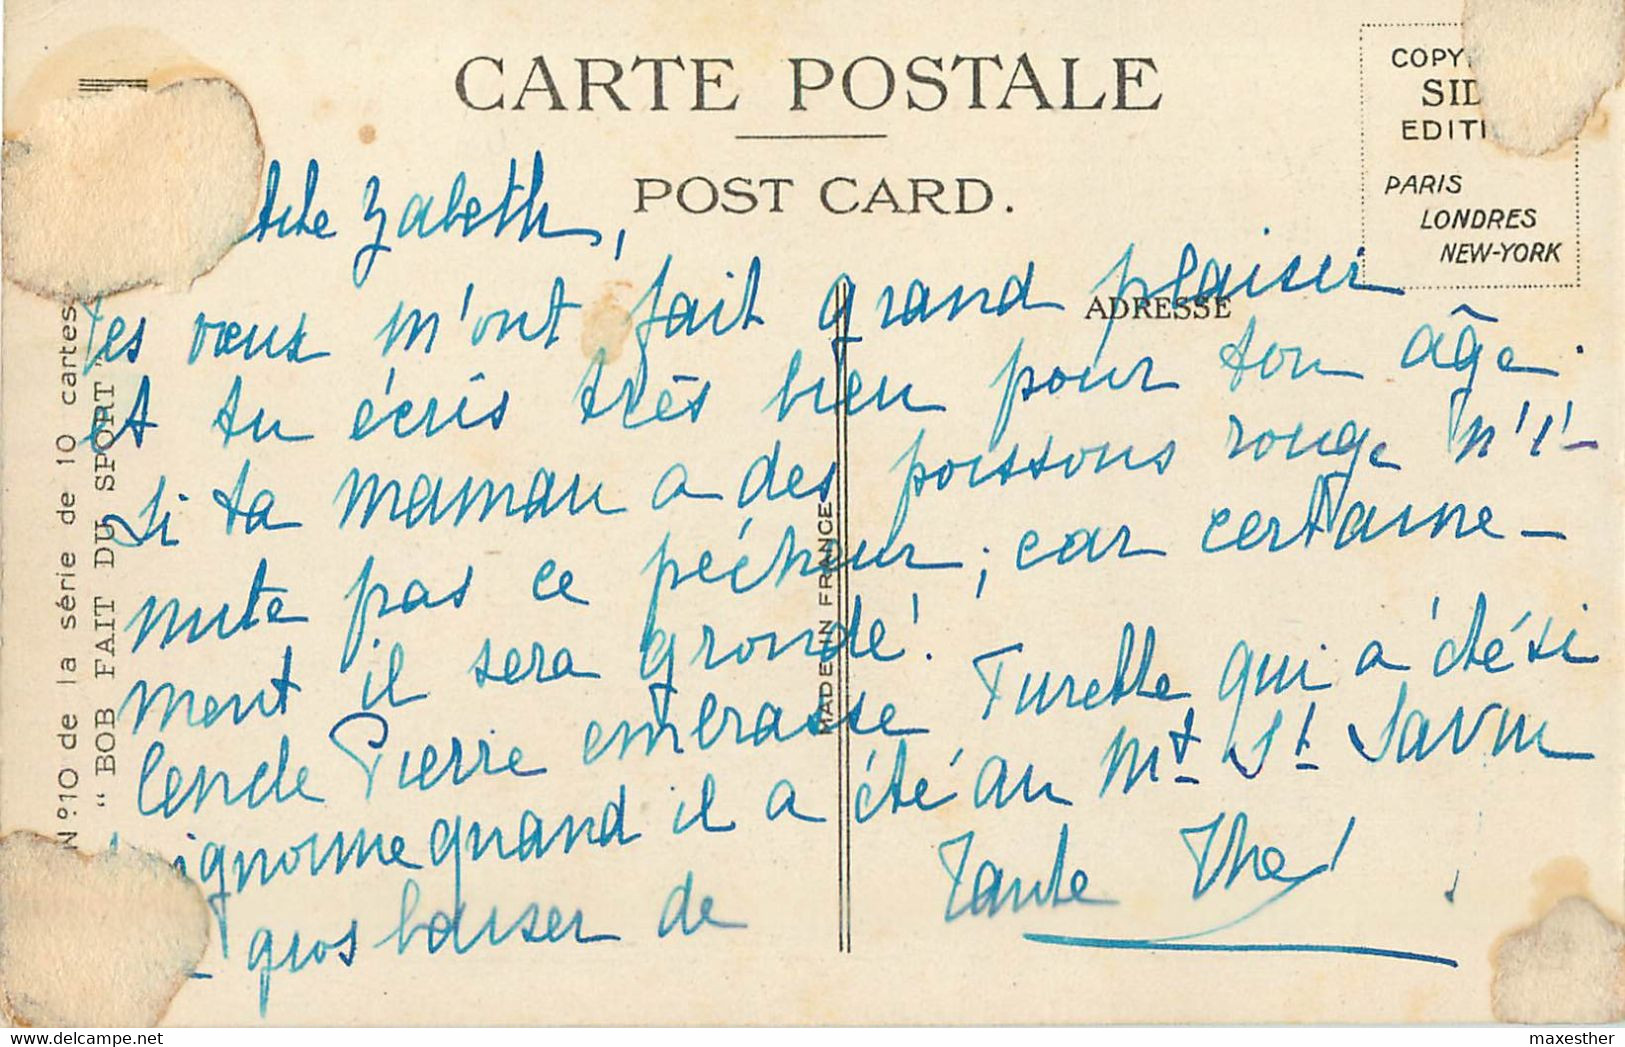 CARTE POSTALE
POST CARD.
COPY
SID
EDITI
PARIS
LONDRES
NEW-YORK
ADRESSE
N° 10 de la série de 10 cartes
" BOB FAIT DU SPORT "
MADE IN FRANCE
tite Zabeth,
Tes vœux m'ont fait grand plaisir
et tu écris très bien pour ton âge.
Si ta maman a des poissons rouge n'i-
mite pas ce pécheur ; car certaine-
ment il sera grondé !
l'oncle Pierre embrasse Turette qui a été si
mignonne quand il a été au Mt St Savin
gros baiser de Tante Thé
maxesther